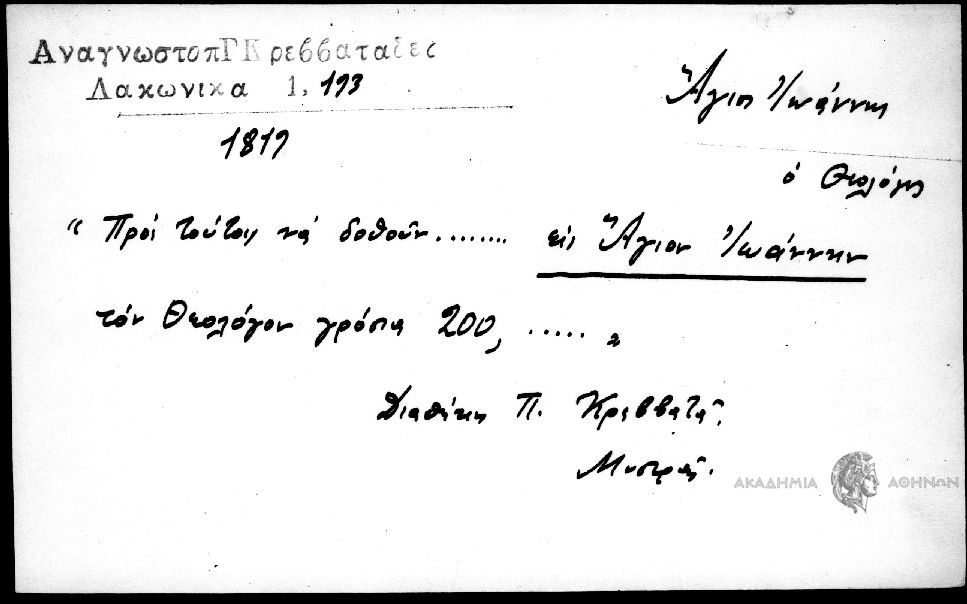 ΑναγνωστοπΓΚρεββαταδες
Λακωνικα 1, 193
Ἅγιος Ἰωάννης
ὁ Θεολόγος
1819
“ Πρὸς τούτοις νά δοθοῦν........ εἰς Ἅγιον Ἰωάννην
τόν Θεολόγον γρόσια 200, ..... „
Διαθήκη Π. Κρεββατᾶ,
Μυστρᾶς.
ΑΚΑΔΗΜΙΑ ΑΘΗΝΩΝ